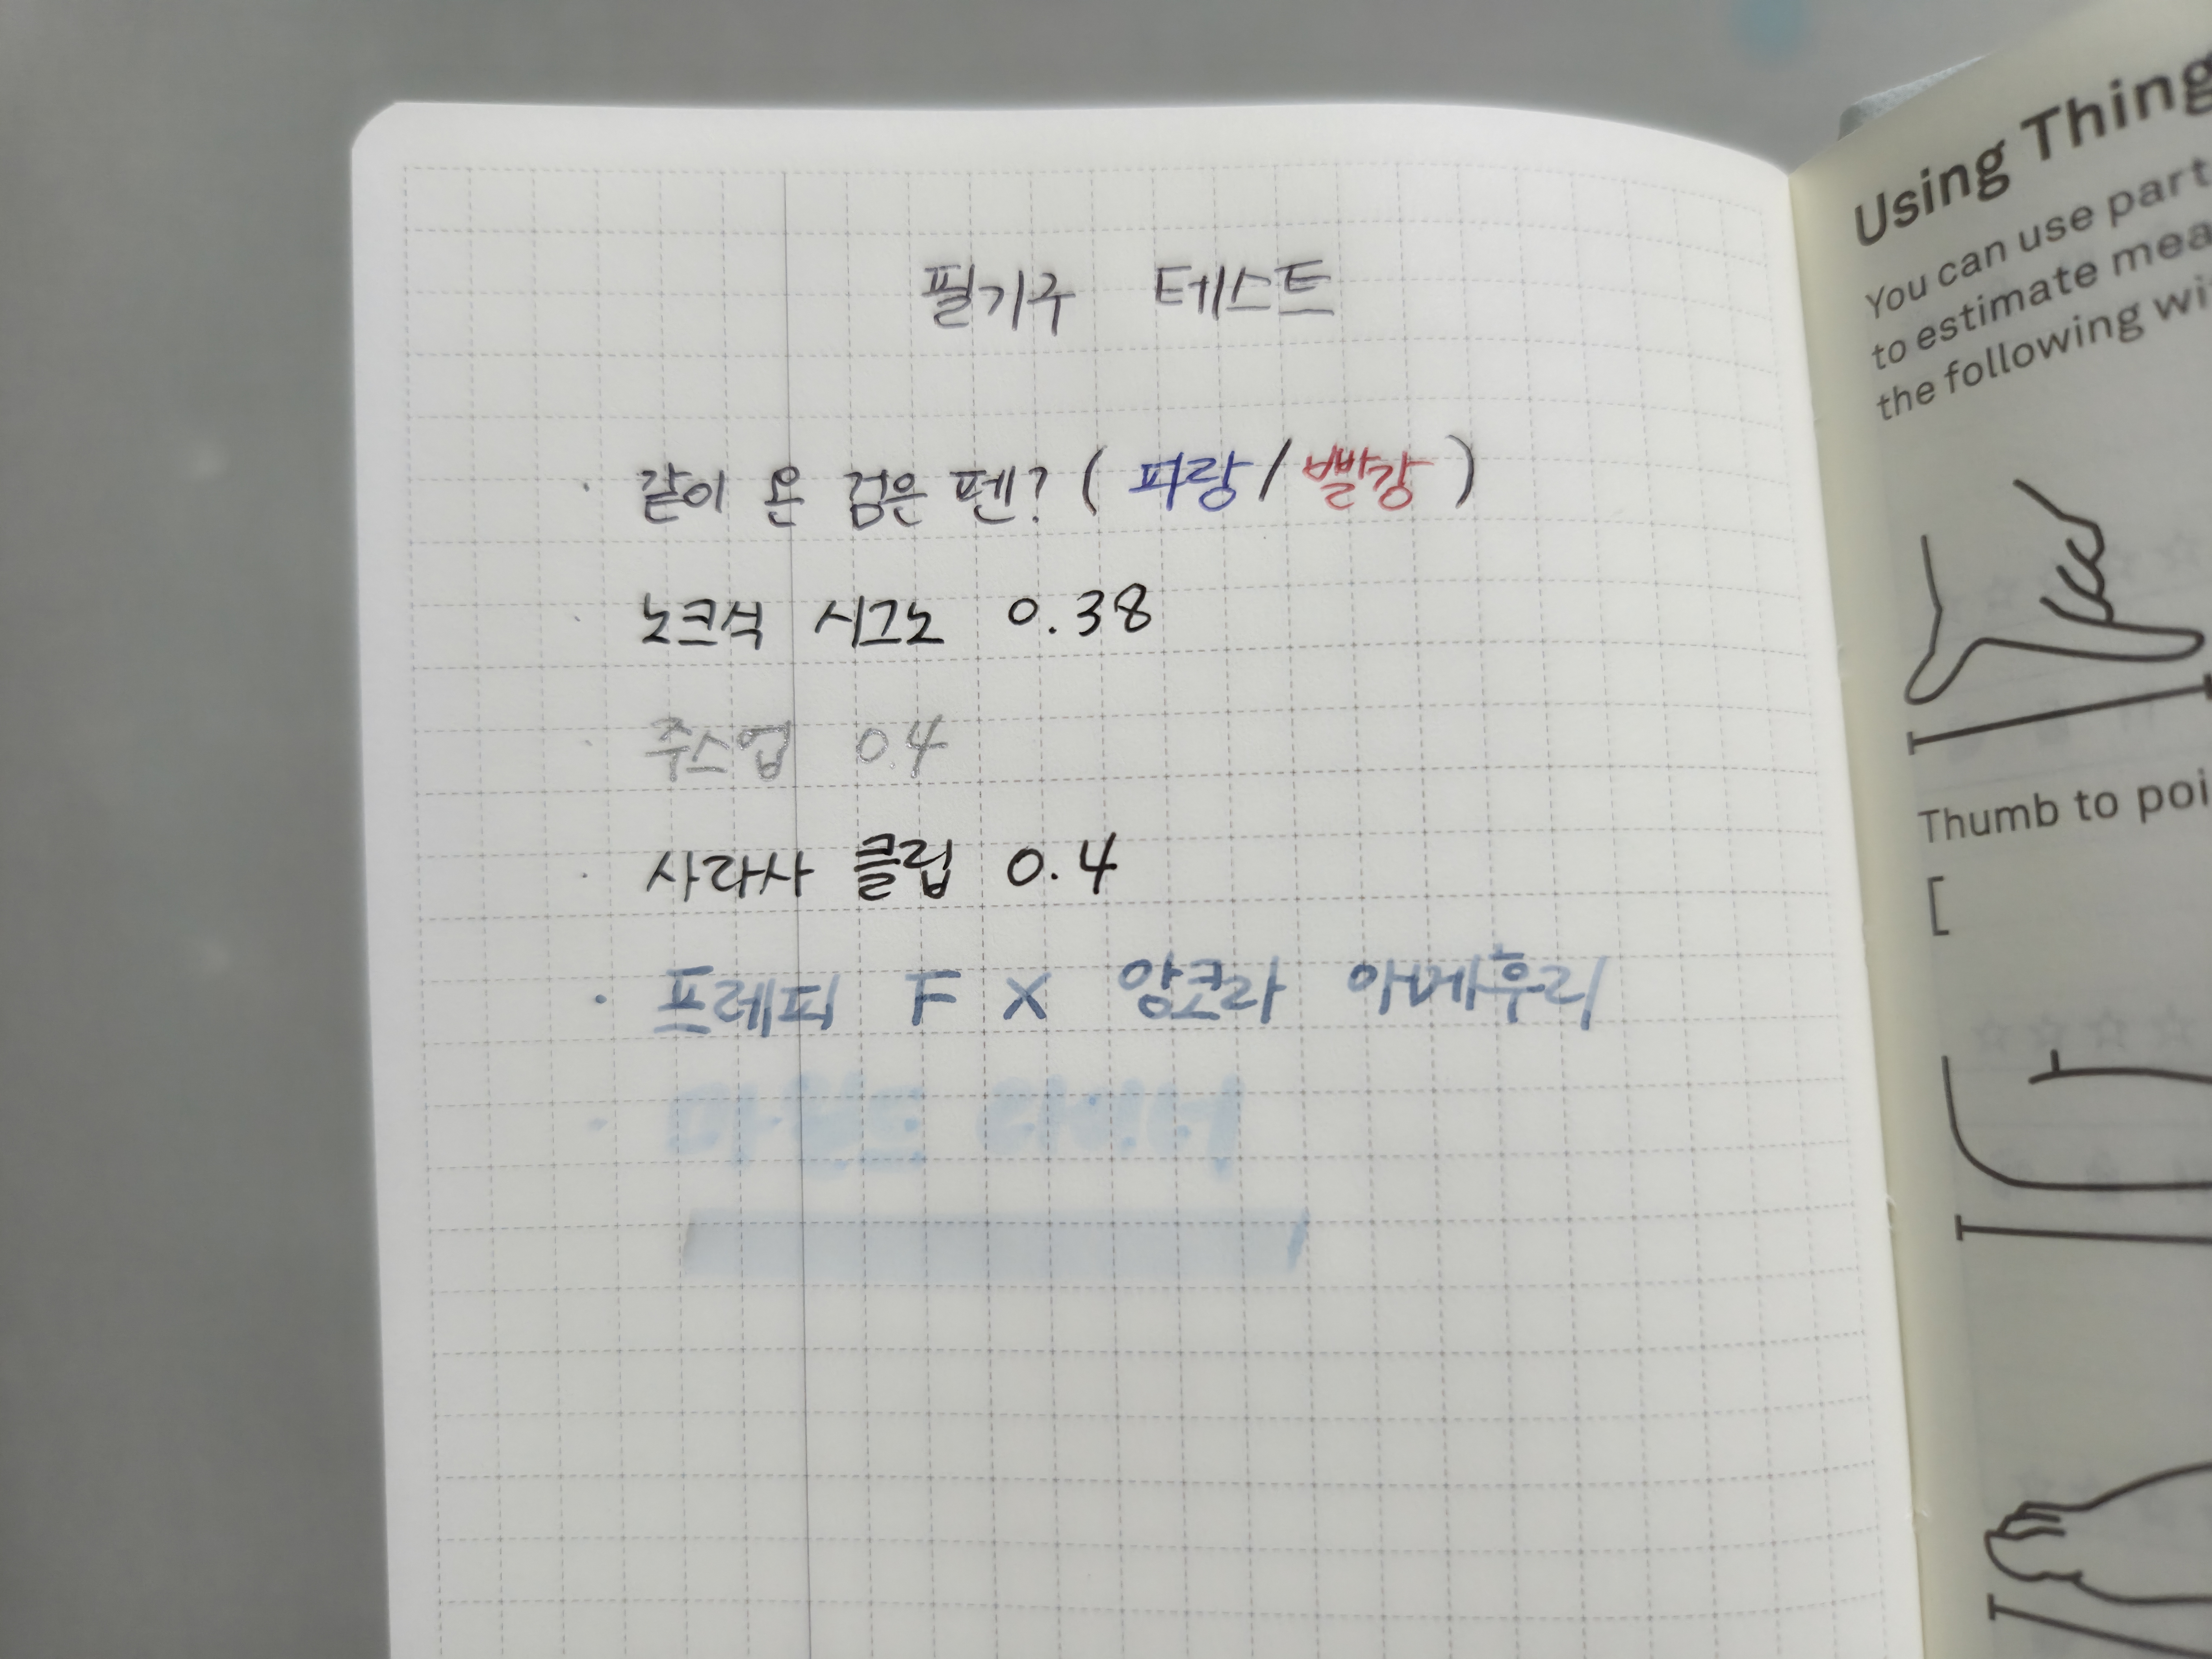 필기구 테스트
· 같이 온 검은 펜? (파랑/빨강)
· 노크식 시그노 0.38
· 주스업 0.4
· 사라사 클립 0.4
· 프레피 F X 앙코라 아메후리
· 마일드
Using Thing
You can use part
to estimate mea
the following wi
Thumb to poi
[